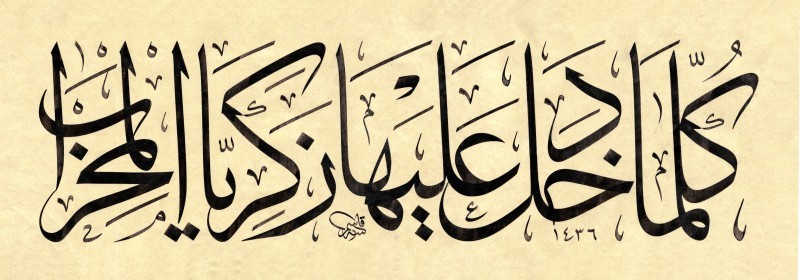 كُلَّمَا دَخَلَ عَلَيْهَا زَكَرِيَّا الْمِحْرَابَ
١٤٣٦